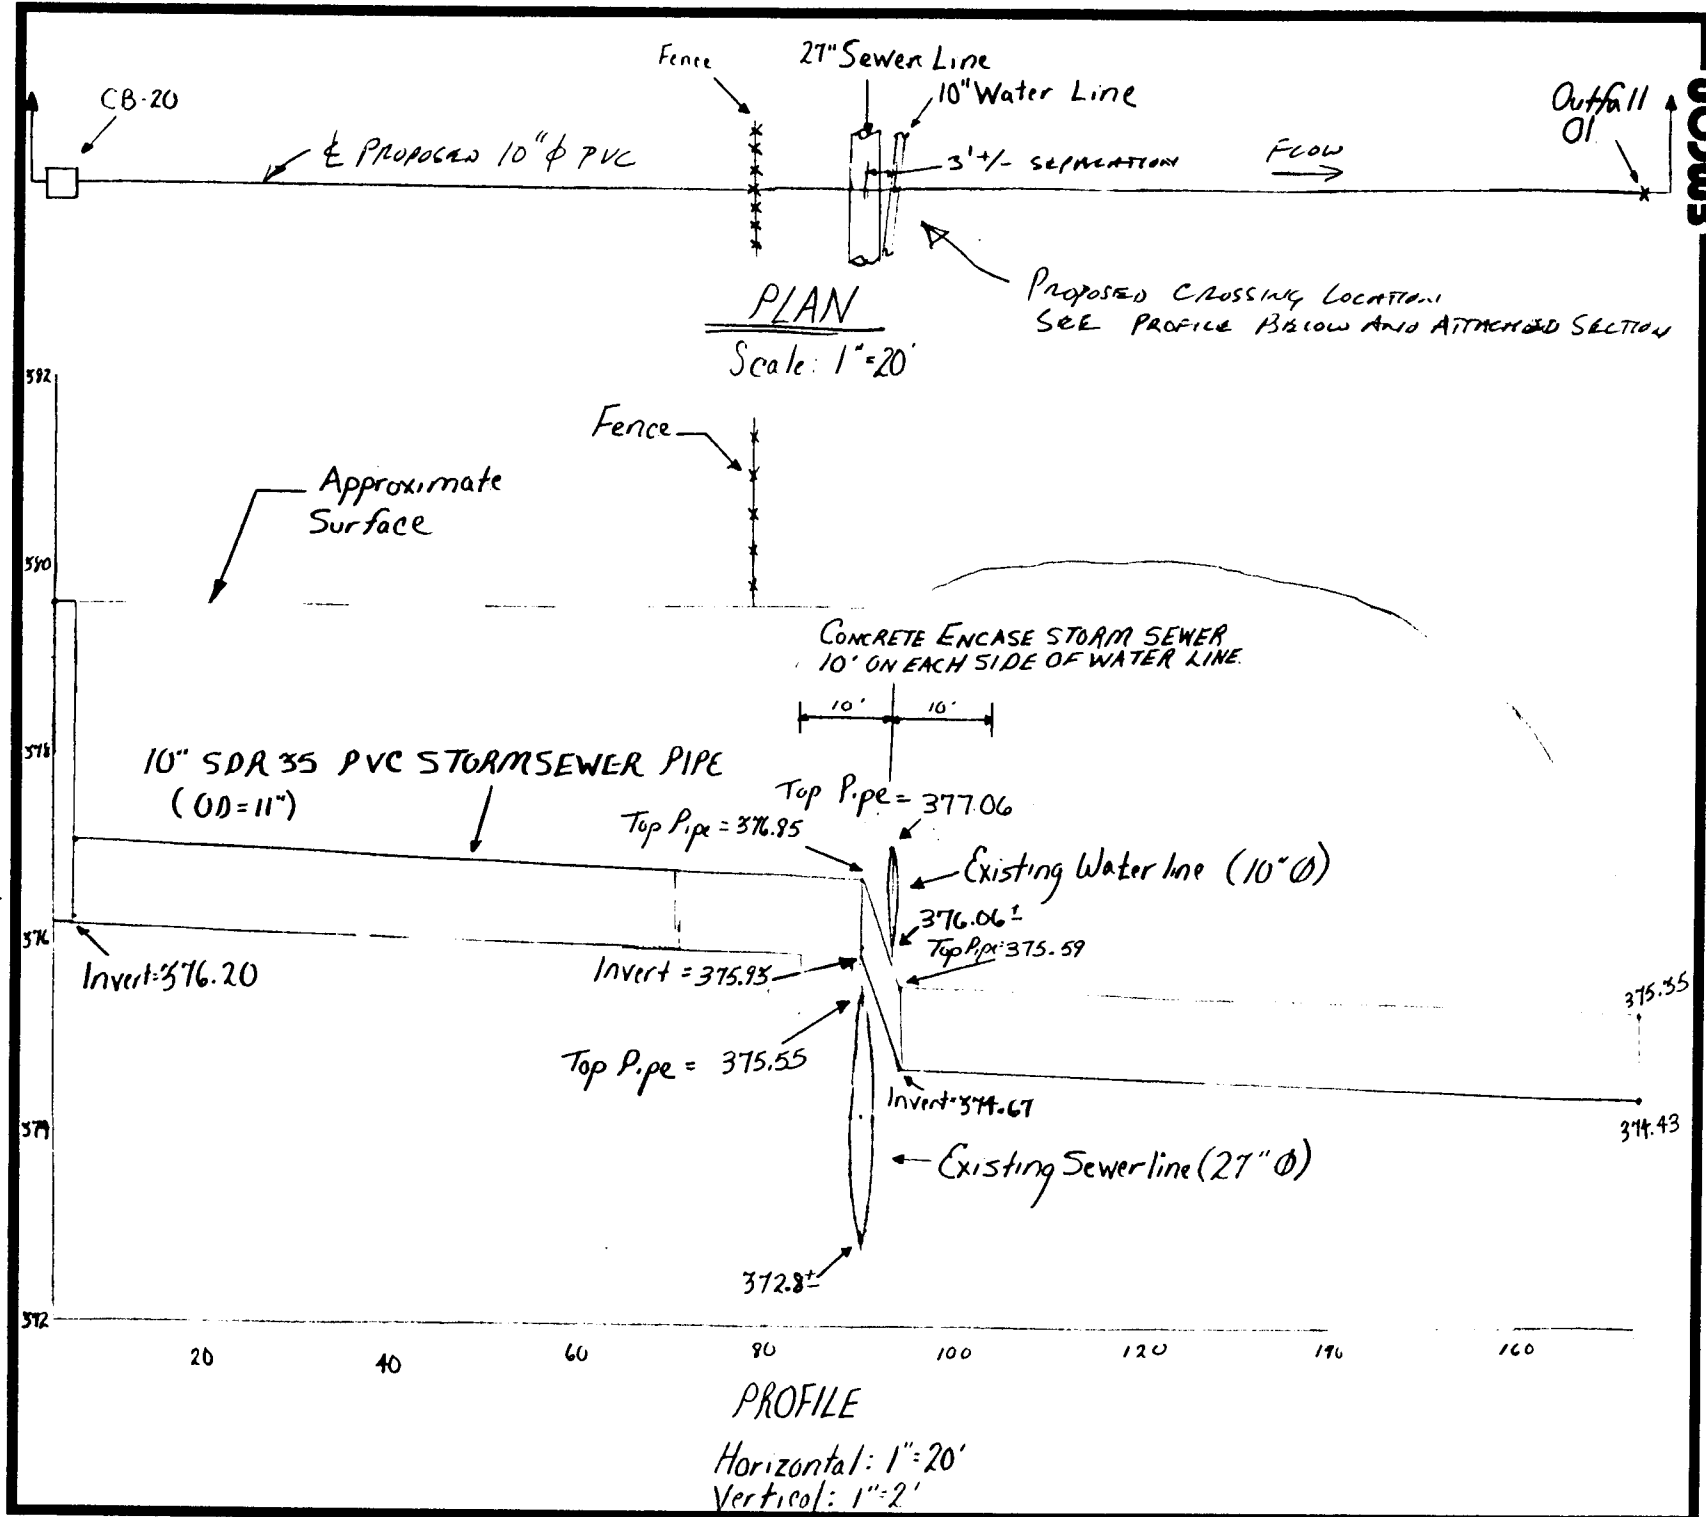 Fence
27" Sewer Line
10" Water Line
CB-20
Outfall
01
emcon
℄ PROPOSED 10" ϕ PVC
3' +/- SEPARATION
FLOW
PLAN
Scale: 1"=20'
PROPOSED CROSSING LOCATION
SEE PROFILE BELOW AND ATTACHED SECTION
382
Fence
Approximate
Surface
380
CONCRETE ENCASE STORM SEWER
10' ON EACH SIDE OF WATER LINE.
10' 10'
378
10" SDR 35 PVC STORMSEWER PIPE
(OD=11")
Top Pipe = 377.06
Top Pipe = 376.85
Existing Water line (10" Ø)
376.06±
Top Pipe=375.59
376
Invert=376.20
Invert = 375.93
375.35
Top Pipe = 375.55
Invert=374.67
374
374.43
Existing Sewerline (27" Ø)
372.8±
372
20 40 60 80 100 120 140 160
PROFILE
Horizontal: 1"=20'
Vertical: 1"=2'